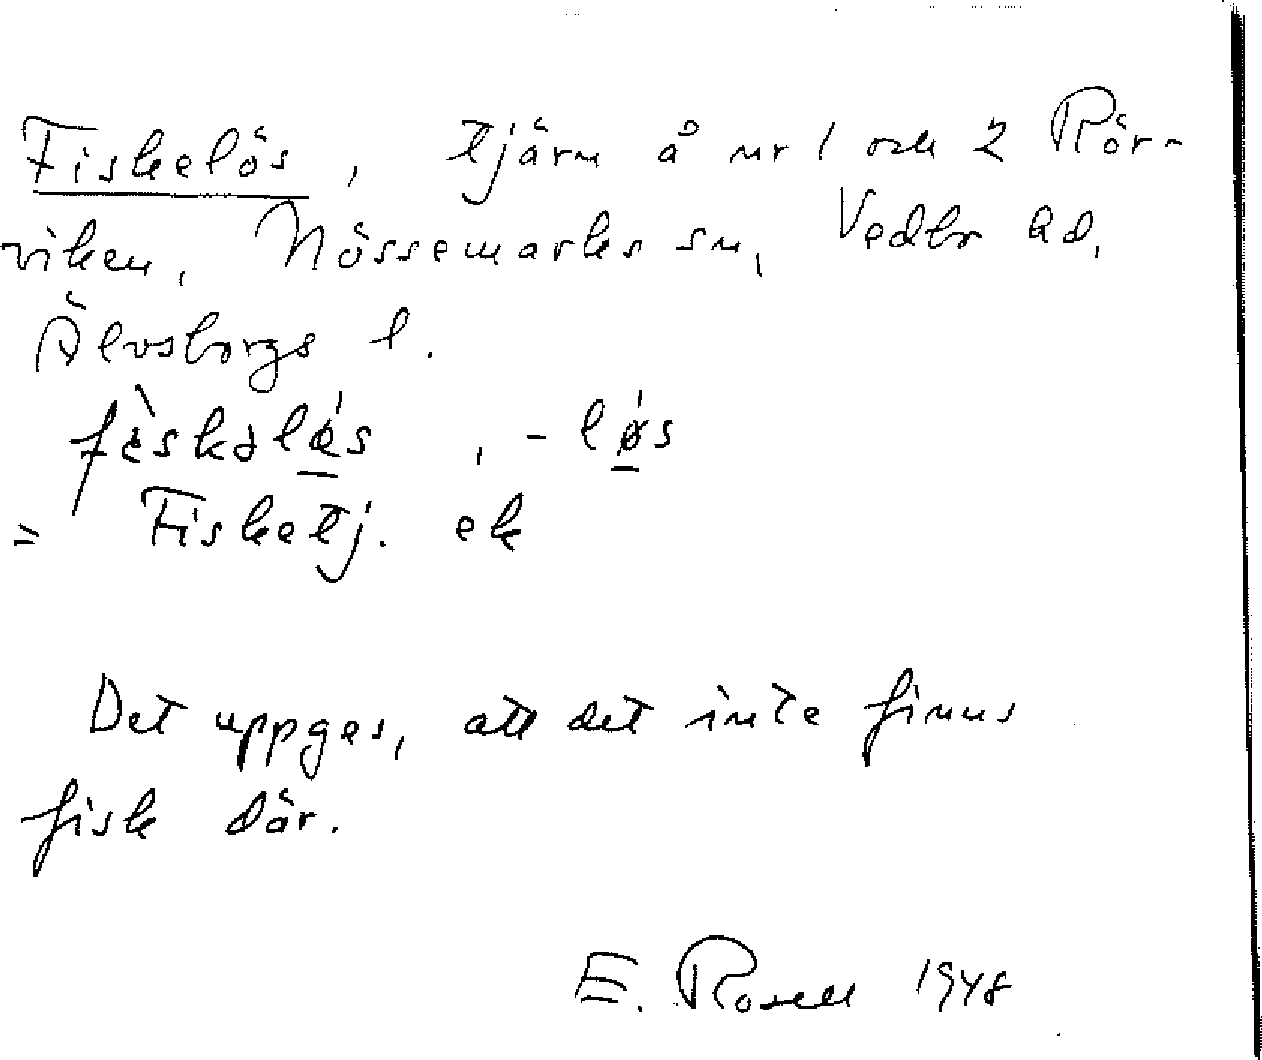 Fiskelös, tjärn å nr 1 och 2 Rör-
viken, Nössemarks sn, Vedbo hd,
Älvsborgs l.
, -
= Fisketj. ek
Det uppges, att det inte finns
fisk där.
E. Rosell 1948